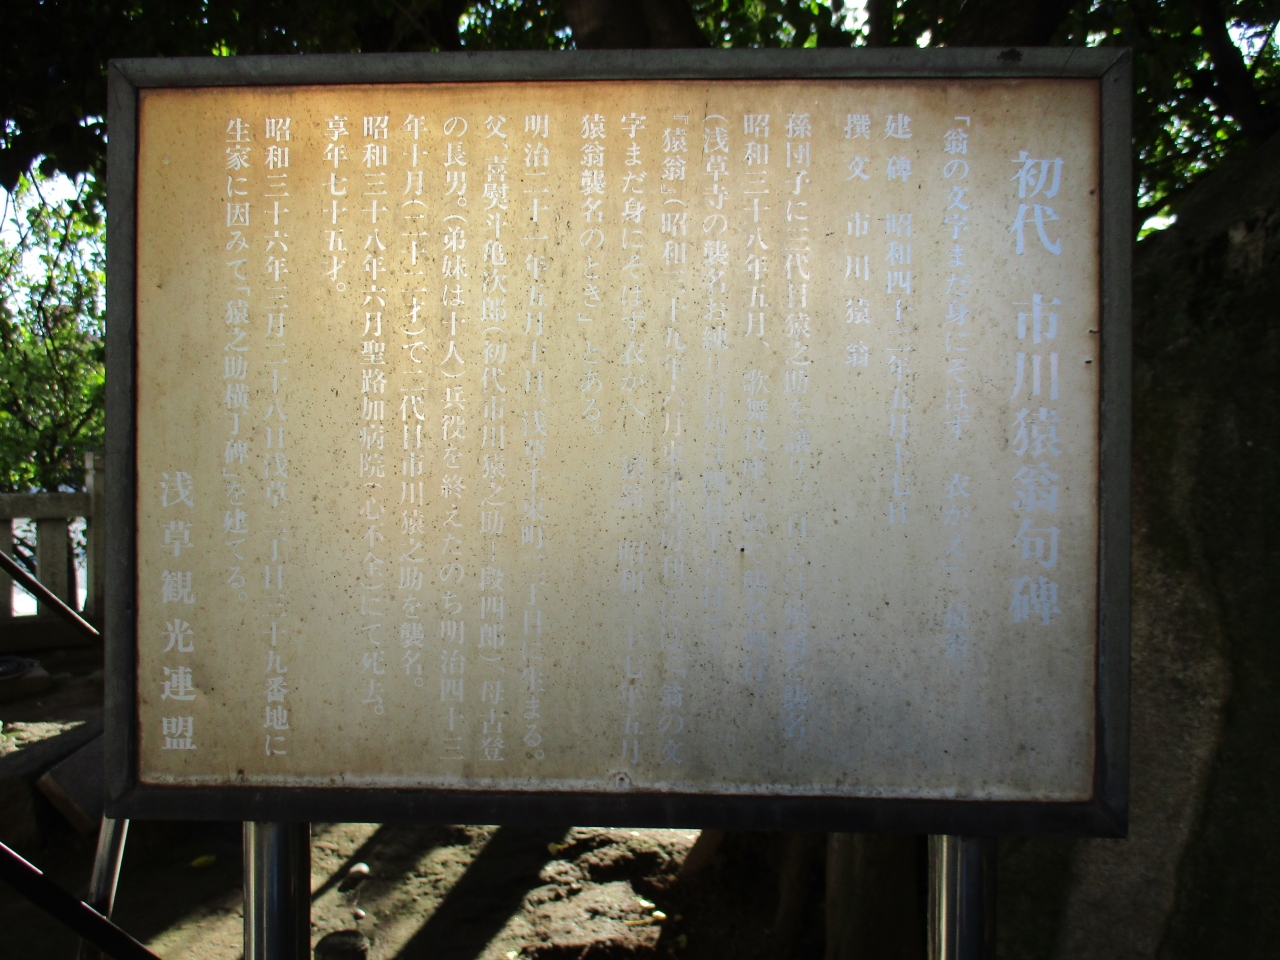 初代 市川猿翁句碑
「翁の文字まだ身にそはず 衣がえ」 猿翁
建碑 昭和四十二年五月十七日
撰文 市川猿翁
孫団子に三代目猿之助を譲り、自らは猿翁を襲名
昭和三十八年五月、歌舞伎座
(浅草寺の襲名お練り
『猿翁』(昭和三十九年六月東京 「翁の文
字まだ身にそはず衣がへ 猿翁 昭和三十七年五月
猿翁襲名のとき」とある。
明治二十一年五月十日、浅草千束町二丁目に生まる。
父、喜熨斗亀次郎(初代市川猿之助・段四郎)、母古登
の長男。(弟妹は十人)兵役を終えたのち明治四十三
年十月(二十二才)で二代目市川猿之助を襲名。
昭和三十八年六月聖路加病院(心不全)にて死去。
享年七十五才。
昭和三十六年三月二十八日浅草三丁目三十九番地に
生家に因みて「猿之助横丁碑」を建てる。
浅草観光連盟